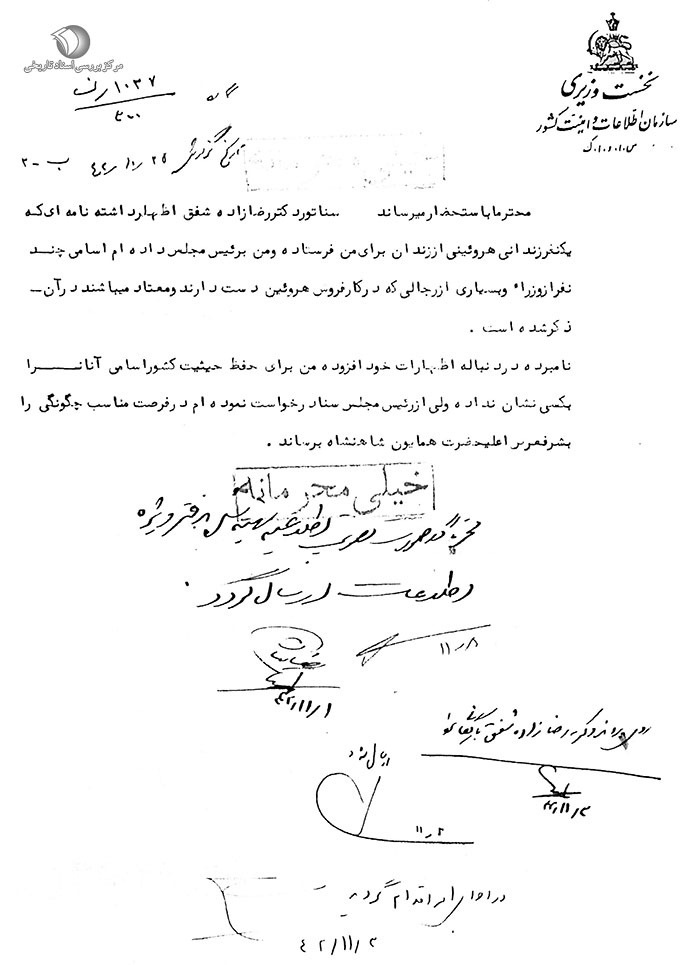 مرکز بررسی اسناد تاریخی
نخست وزیری
سازمان اطلاعات و امنیت کشور
س.ا.و.ا.ک
۱۰۳۷
تاریخ گزارش ۴۲/۱۰/۲۵ ب-۲
محترما باستحضار میرساند سناتور دکتر رضازاده شفق اظهار داشته نامه ای که
یکنفر زندانی هروئینی از زندان برای من فرستاده و من برئیس مجلس داده ام اسامی چند
نفر از وزراء و بسیاری از رجالی که در کار فروش هروئین دست دارند و معتاد میباشند در آن-
ذکر شده است .
نامبرده در دنباله اظهارات خود افزوده من برای حفظ حیثیت کشور اسامی آنان را
بکسی نشان نداده ولی از رئیس مجلس سنا درخواست نموده ام در فرصت مناسب چگونگی را
بشرفعرض اعلیحضرت همایون شاهنشاه برساند .
خیلی محرمانه
دفتر ویژه
اطلاعات ارسال گردد .
۱۱/۸
۴۲/۱۱/۱
دکتر رضازاده شفق
۴۲/۱۱/۳
۱۱/۲
در اجرای امر اقدام گردید
۴۲/۱۱/۳